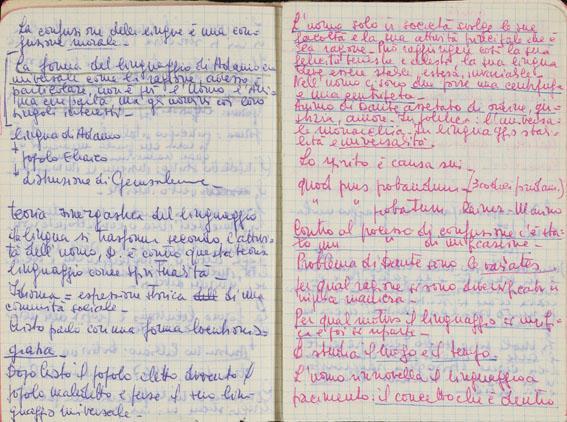 La confusione delle lingue è una con-
fusione morale.-
La forma del linguaggio di Adamo era
universale come la ragione, adesso è
particolare, non è più l'uomo l'Ani-
ma che parla ma gli uomini coi loro
singoli interessi.-
lingua di Adamo
popolo Ebraico
distruzione di Gerusalemme-
Teoria energastica del linguaggio
la lingua si trasforma secondo l'attivi-
tà dell'uomo, D. è contro questa teoria
linguaggio come spiritualità-
Idioma = espressione storica di una
comunità sociale.-
Cristo parlò con una forma locutionis
gratiae-
Dopo Cristo il popolo eletto diventò il
popolo maledetto e perse il suo lin-
guaggio universale.-
L'uomo solo in società svolge le sue
facoltà e la sua attività principale che è
la ragione.- Può raggiungere così la sua
felicità terrestre e celeste, la sua lingua
deve essere stabile, estesa, invariabile.
Nell'uomo ci sono due forze una centrifuga
e una centripeta.-
Animo di Dante assetato di ordine, giu-
stizia, amore. In politica: l'universa-
le monarchia. In linguaggio stabi-
lità e universalità.-
Lo spirito è causa sui-
quod prius probandum-
" " probatum Rainer-Marino
Contro al processo di confusione c'è sta-
to un " di unificazione.-
Problema di Dante sono le varietates
per qual ragione si sono diversificati in
in una maniera.-
Per qual motivo il linguaggio si unifi-
ca e poi si riparte.-
D. studia il luogo e il tempo
L'uomo rinnovella il linguaggio a
piacimento: il concetto che è dentro